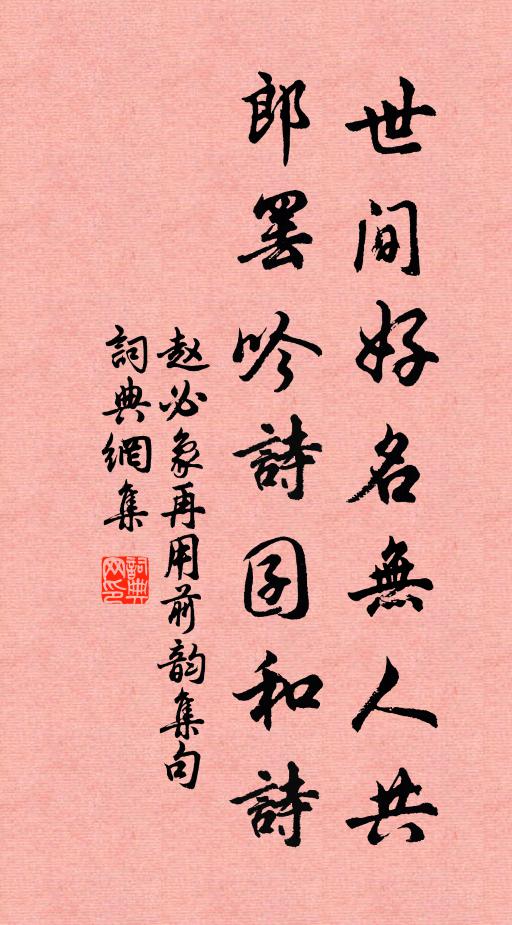 世間好名無人共
郎罷吟詩囝和詩
赵必象再用前韵集句
詞典網集
詞典网印